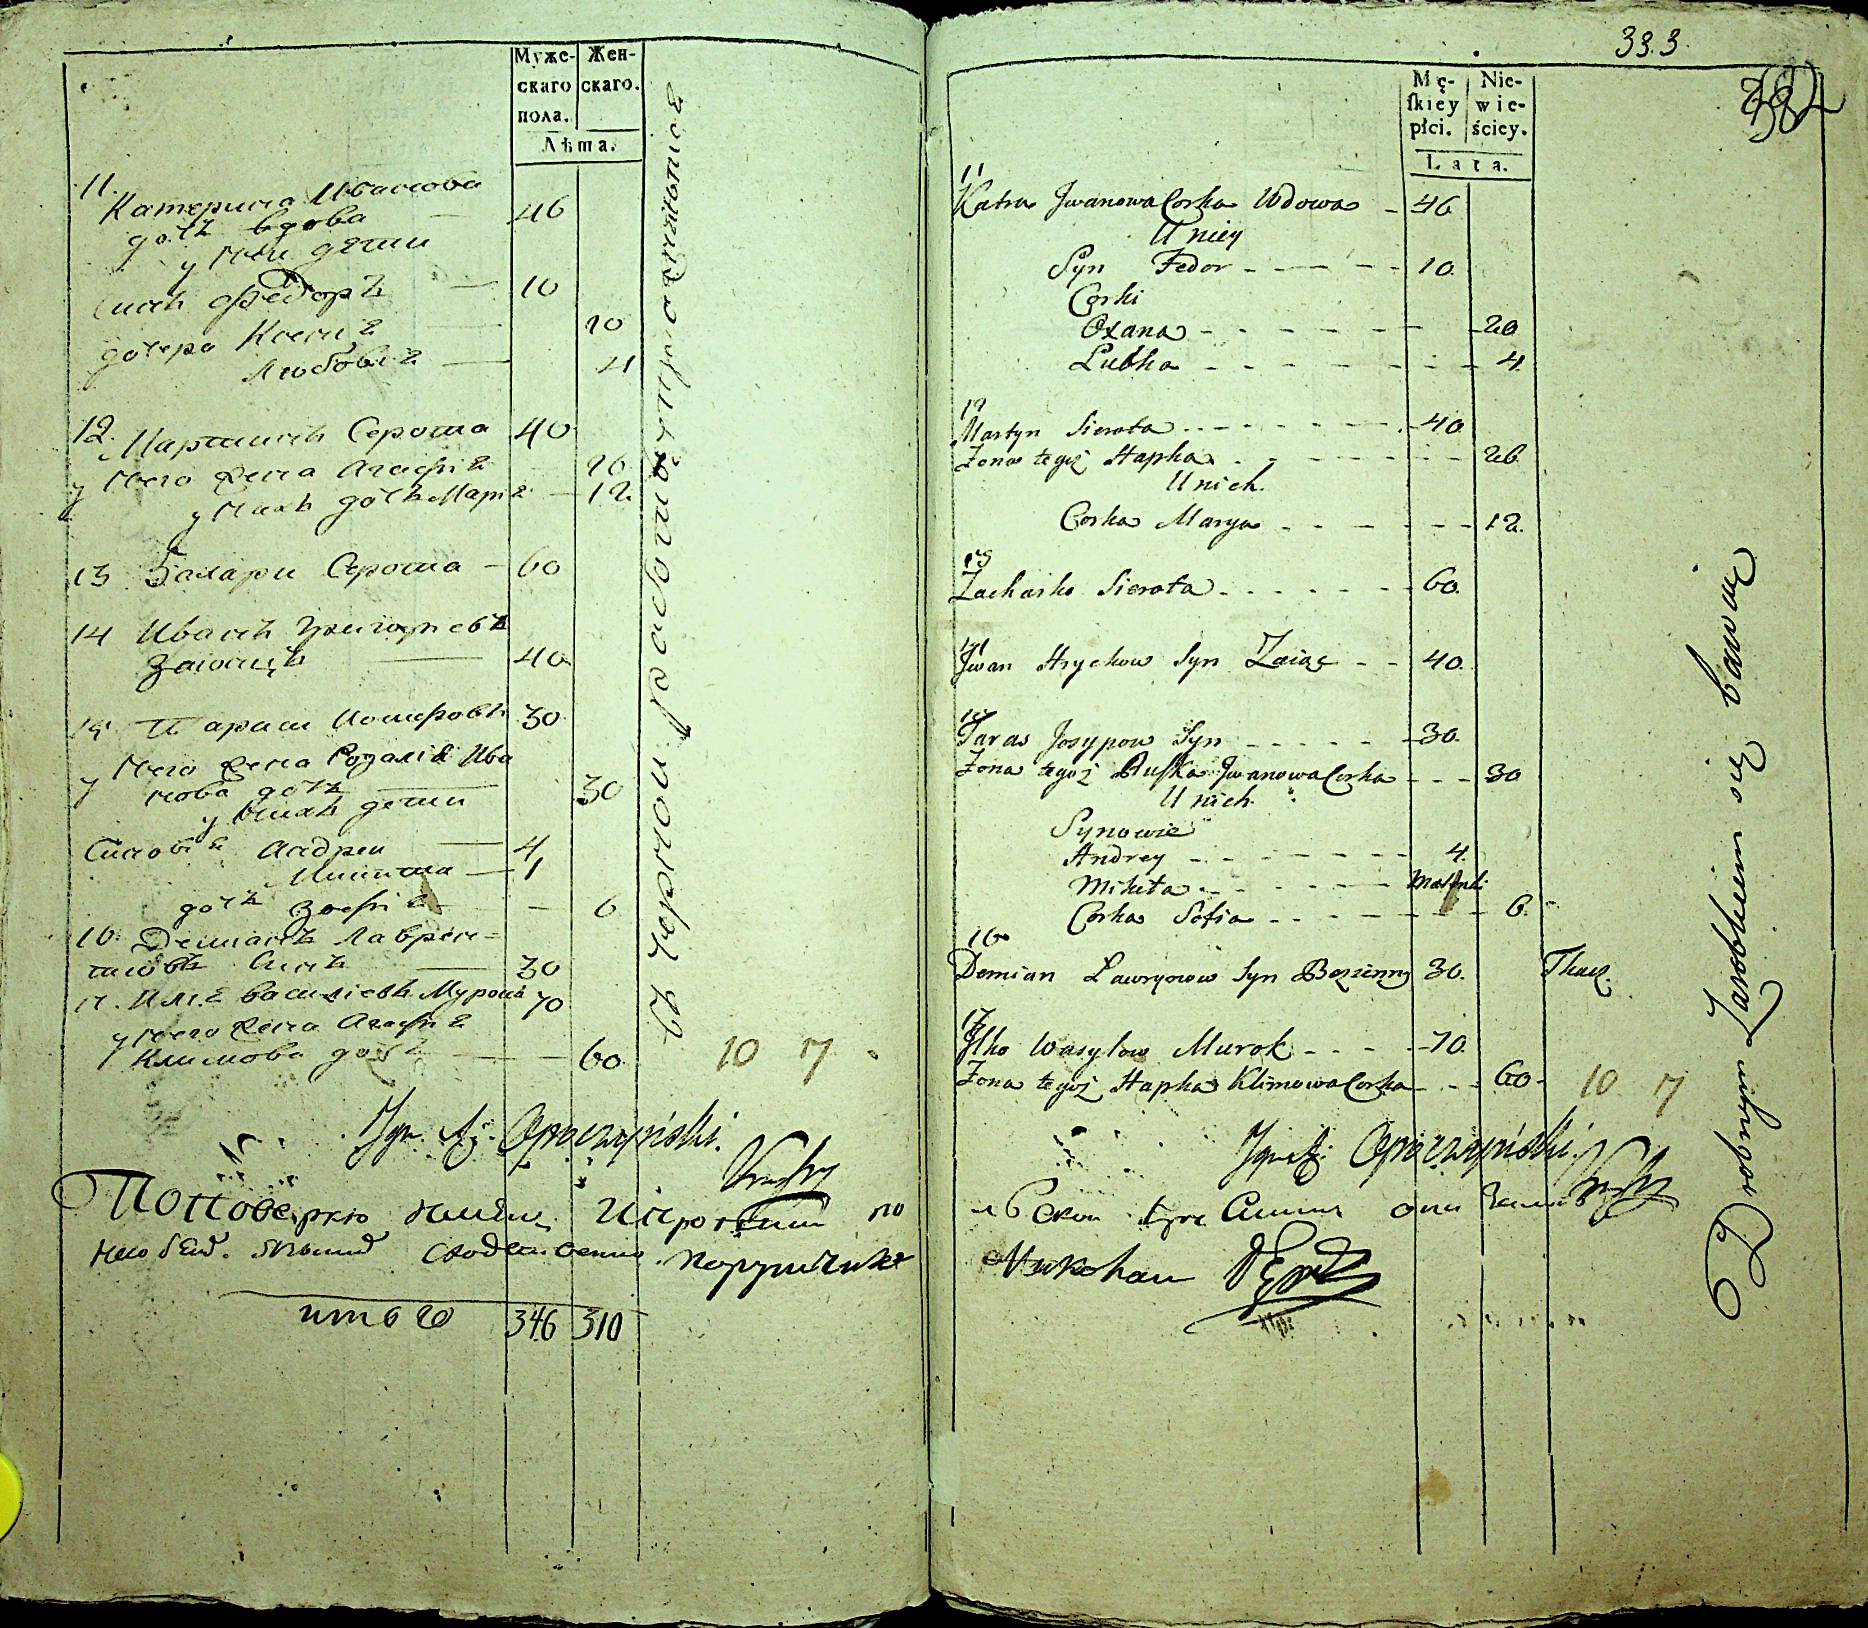 Муже-
скаго
пола.
Жен-
скаго.
Лѣта.
11.
Катерина Иванова
дочь вдова 46
у ней дѣти
сынъ Федоръ 10
дочери Ксения 20
Любовiя 4
12. Мартинъ Серота 40
у него жена Агафiя 26
у нихъ дочь Марiя 12
13 Захари Серота 60
14 Иванъ Григорьевъ
Заионцъ 40
15 Тарас Иосифовъ 30
у него жена Розалiя Ива
нова дочь 30
у нихъ дети
Синовiя Андреи 4
Микита 1
дочь Зофiя 6
16 Демианъ Лаврен-
тиовъ Синъ 30
17. Илiя Василiевъ Мурокъ 70
у него жена Агафiя
Климова дочь 60
въ черной работѣ
10 7
Opoczyński.
поручикъ
итого 346 310
333
Mę-
ſkiey
płci.
Nie-
wie-
ściey.
Lata.
11
Katra Jwanowa Corka Wdowa 46
U niey
Syn Fedor 10
Corki
Oxana 20
Lubka 4
12
Martyn Sierota 40
Zona tegoż Hapka 26
U nich.
Corka Marya 12.
13
Zacharko Sierota 60.
14
Jwan Hrychow Syn Zaiąc 40.
15
Taras Josypow Syn 30.
Zona tegoż Ruſka Jwanowa Corka 30
U nich.
Synowie
Andrey 4.
Mikita Malenki
Corka Sofia 6.
16
Demian Lawrynow Syn 30. Tkacz.
17
Jlko Wasylow Murok 70.
Zona tegoż Hapka Klimowa Corka 60
10 7
Opoczyński.
Drobnym Zarobkiem się bawią